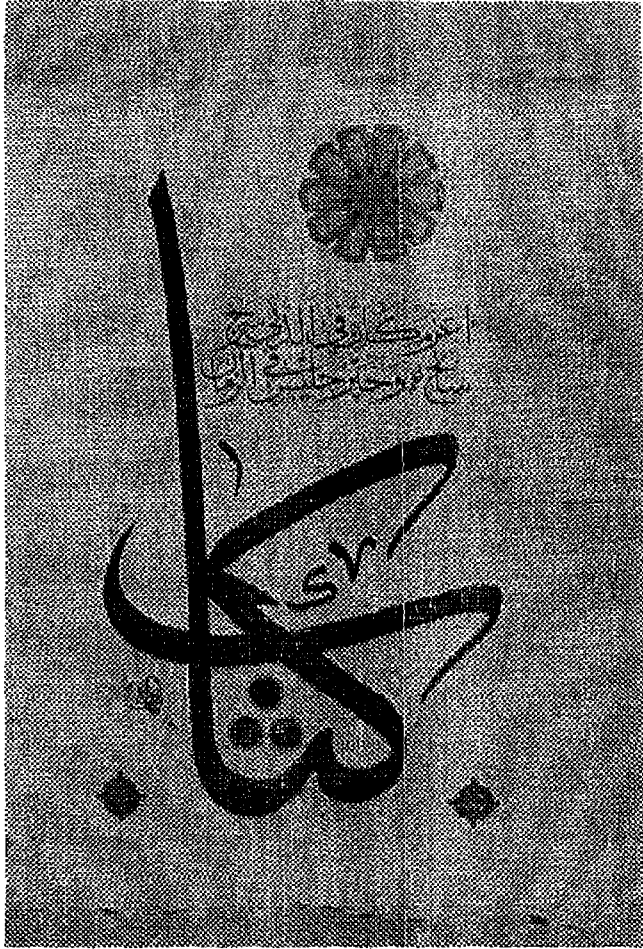 أعز مكان في الدنى سرج
سابح وخير جليس في الزمان
كتاب